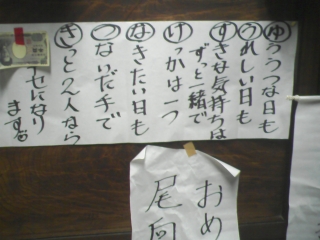 ゆううつな日も
うれしい日も
すきな気持ちは
ずっと一緒で
けっかは一つ
なきたい日も
つないだ手で
きっと2人なら
セになり
ます
おめ
尾